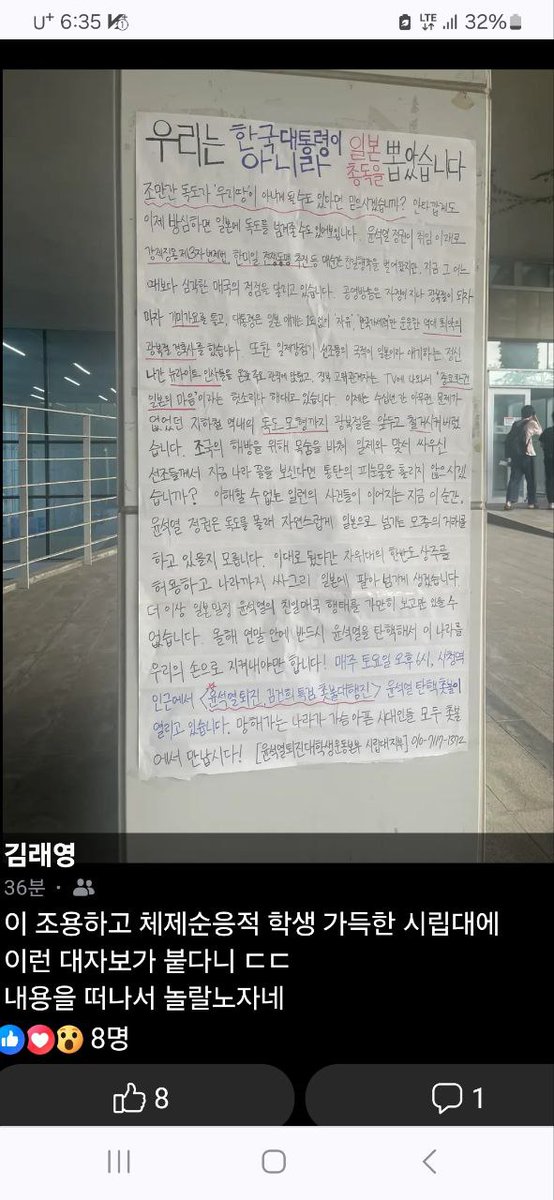 U+ 6:35
LTE 32%
우리는 한국대통령이 아니라 일본 총독을 뽑았습니다
조만간 독도가 '우리땅'이 아니게 될 수도 있다면 믿으시겠습니까? 안타깝게도
이제 방심하면 일본에 독도를 넘겨줄 수도 있어보입니다. 윤석열 정권이 취임 이래로
강제징용 제3자 변제법, 한미일 전쟁동맹 추진 등 매순간 친일행각을 벌여왔지만, 지금 그 어느
때보다 심각한 매국의 정점을 달리고 있습니다. 공영방송은 자정이 지나 광복절이 되자
마자 기미가요를 틀고, 대통령은 일본 얘기는 1도 없이 '자유' 운운한 역대 최악의
광복절 경축사를 했습니다. 또한 일제강점기 선조들의 국적이 일본이라 얘기하는 정신
나간 뉴라이트 인사들을 온갖 주요 관직에 앉혔고, 정부 고위관계자는 TV에 나와서 "중요한건
일본의 마음"이라는 헛소리나 해대고 있습니다. 이제는 수십년간 아무런 문제가
없었던 지하철 역내의 독도 모형까지 광복절을 앞두고 철거시켜버렸
습니다. 조국의 해방을 위해 목숨을 바쳐 일제와 맞서 싸우신
선조들께서 지금 나라 꼴을 보신다면 통탄의 피눈물을 흘리지 않으시겠
습니까? 이해할 수 없는 일련의 사건들이 이어지는 지금 이 순간,
윤석열 정권은 독도를 몰래 자연스럽게 일본으로 넘기는 모종의 거래를
하고 있을지 모릅니다. 이대로 뒀다간 자위대의 한반도 상주를
허용하고 나라까지 싸그리 일본에 팔아 넘기게 생겼습니다.
더 이상 일본밀정 윤석열의 친일매국 행태를 가만히 보고만 있을 수
없습니다. 올해 연말 안에 반드시 윤석열을 탄핵해서 이 나라를
우리의 손으로 지켜내야만 합니다! 매주 토요일 오후 6시, 시청역
인근에서 <윤석열퇴진, 김건희 특검 촛불대행진> 윤석열 탄핵 촛불이
열리고 있습니다. 망해가는 나라가 가슴 아픈 시대인들 모두 촛불
에서 만납시다! [윤석열퇴진대학생운동본부 시립대지부] 010-7117-1372
김래영
36분 ·
이 조용하고 체제순응적 학생 가득한 시립대에
이런 대자보가 붙다니 ㄷㄷ
내용을 떠나서 놀랄노자네
8명
8
1